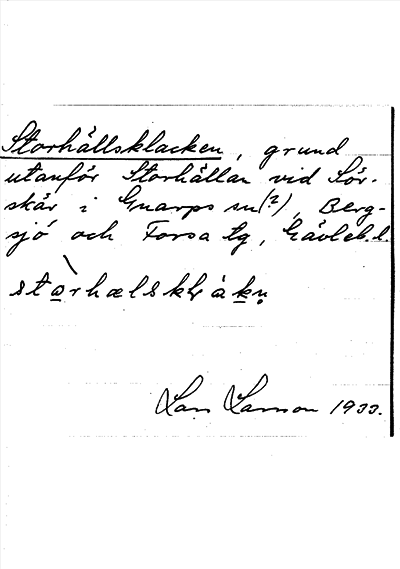 Storhällsklacken, grund
utanför Storhällan vid Sör-
skär i Gnarps sn(?), Berg-
sjö och Forsa tg, Gävleb. l.
starhælsklakn̥
Lars Larsson 1933.